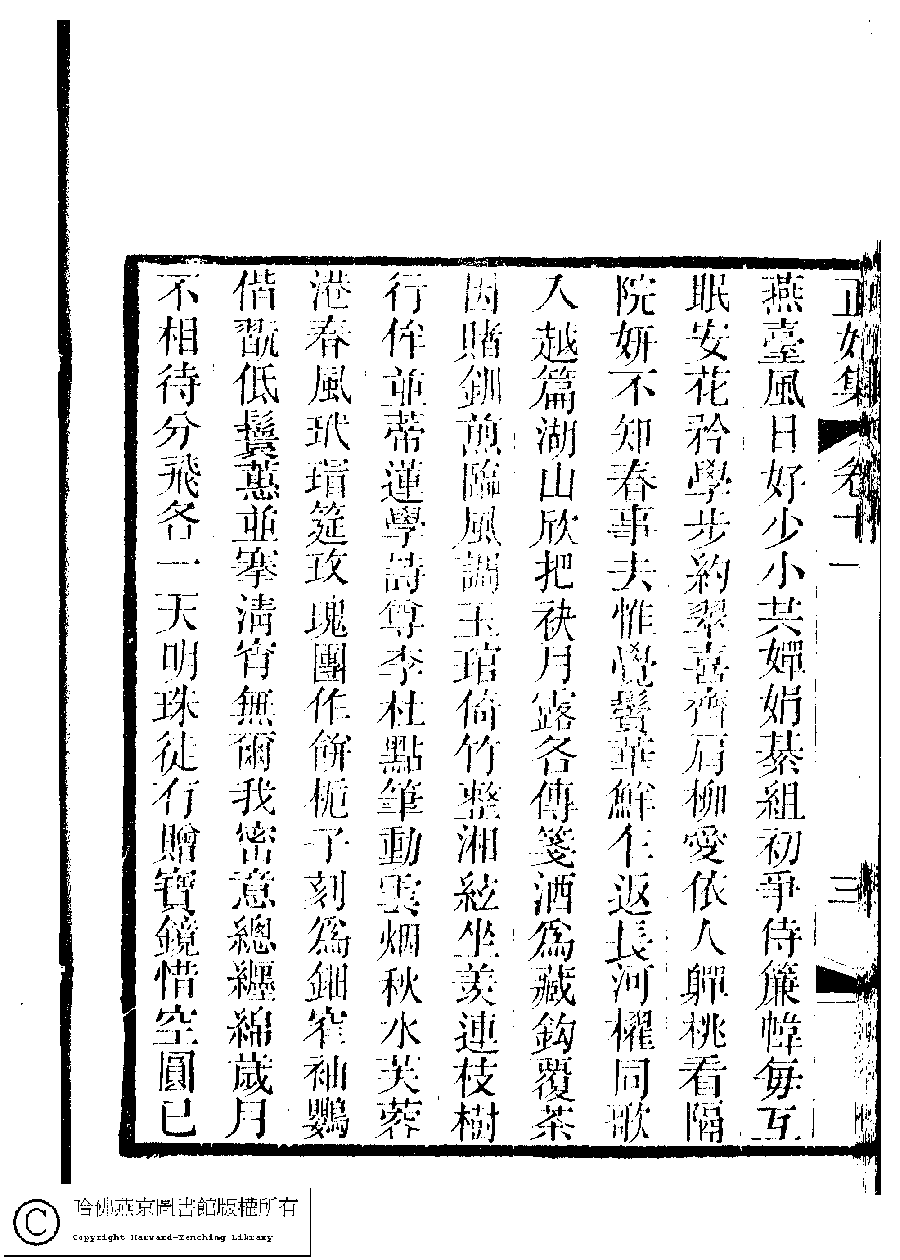 正始集 卷十一 三
燕臺風日好少小共嬋娟綦組初爭侍簾幃每互
眠安花矜學步約翠喜齊肩柳愛依人嚲桃看隔
院妍不知春事去惟覺鬢華鮮乍返長河櫂同歌
人越篇湖山欣把袂月露各傳箋酒為藏鈎覆茶
因賭釧煎臨風調玉琯倚竹整湘絃坐羨連枝樹
行侔並蒂蓮學詩尊李杜點筆動雲烟秋水芙蓉
港春風玳瑁筵玫瑰團作餅梔子刻為鈿窄袖鸚
偕翫低鬟蕙並搴清宵無爾我密意總纏綿歲月
不相待分飛各一天明珠徒有贈寶鏡惜空圓已
哈佛燕京圖書館版權所有
Copyright Harvard-Yenching Library